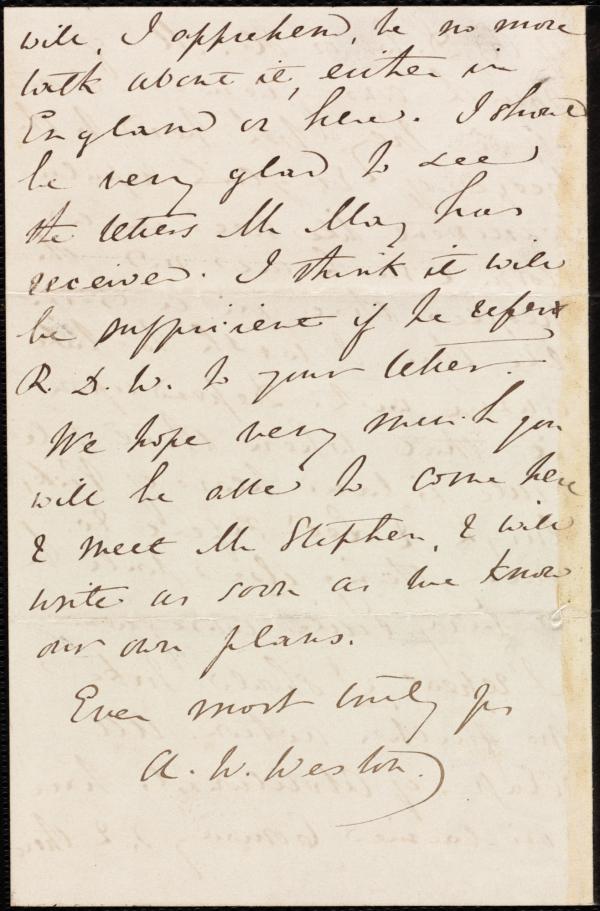 will, I apprehend, be no more
talk about it, either in
England or here. I should
be very glad to see
the letters Mr May has
received. I think it will
be sufficient if he refers
R. D. W. to your letter.
We hope very much you
will be able to come here
& meet Mr Stephen, & will
write as soon as we know
our own plans.
Ever most truly yrs
A. W. Weston.